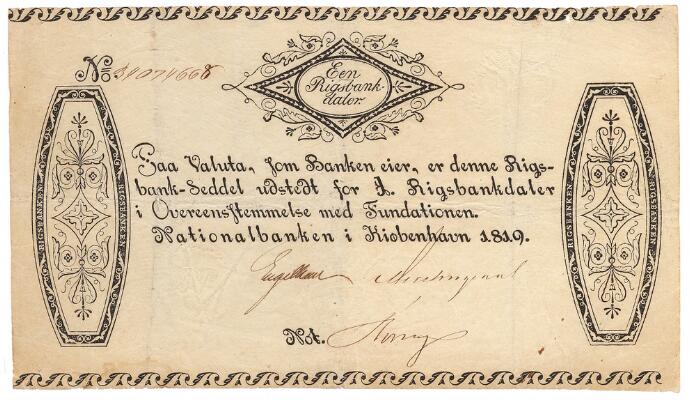 No
Een
Rigsbank-
daler.
Paa Valuta, ſom Banken eier, er denne Rigs-
bank-Seddel udstedt for 1. Rigsbankdaler
i Overeenſtemmelse med Fundationen.
Nationalbanken i Kiøbenhavn 1819.
Not.
RIGSBANKEN
RIGSBANKEN
RIGSBANKEN
RIGSBANKEN